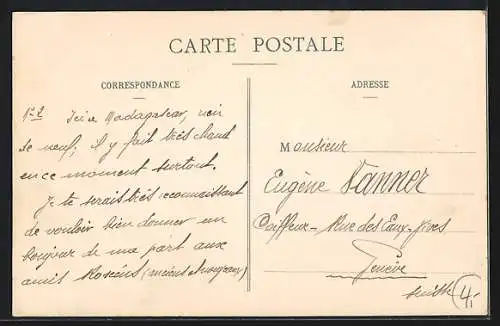 CARTE POSTALE
CORRESPONDANCE
N° 2 Ici à Madagascar, rien
de neuf; il y fait très chaud
en ce moment surtout.
Je te serais très reconnaissant
de vouloir bien donner un
bonjour de ma part aux
amis (anciens
ADRESSE
Monsieur
Eugène Tanner
Coiffeur - Rue des Eaux-Vives
Genève
Suisse
4.-